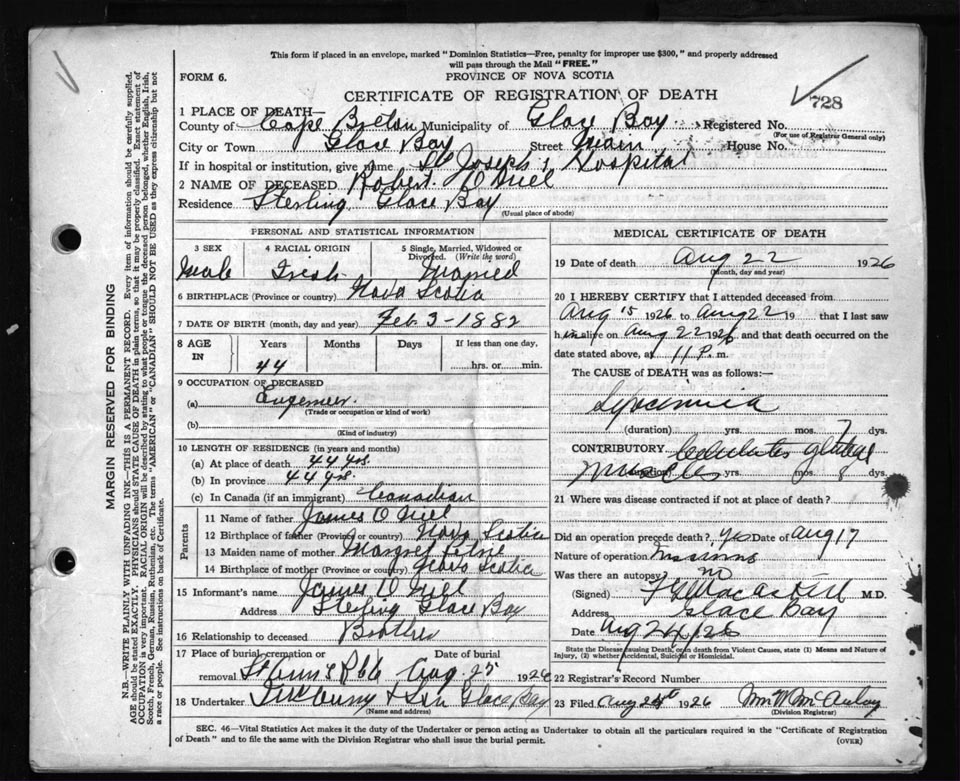 This form if placed in an envelope, marked "Dominion Statistics—Free, penalty for improper use $300," and properly addressed
will pass through the Mail "FREE."
FORM 6.
PROVINCE OF NOVA SCOTIA
CERTIFICATE OF REGISTRATION OF DEATH
728
1 PLACE OF DEATH—
County of Cape Breton Municipality of Glace Bay Registered No.
(For use of Registrar General only)
City or Town Glace Bay Street Main House No.
If in hospital or institution, give name St Joseph's Hospital
2 NAME OF DECEASED Robert O'Niel
Residence Sterling Glace Bay
(Usual place of abode)
PERSONAL AND STATISTICAL INFORMATION
3 SEX
4 RACIAL ORIGIN
5 Single, Married, Widowed or
Divorced. (Write the word)
Male Irish Married
6 BIRTHPLACE (Province or country) Nova Scotia
7 DATE OF BIRTH (month, day and year) Feb. 3-1882
8 AGE
IN
Years
Months
Days
If less than one day,
44
hrs. or min.
9 OCCUPATION OF DECEASED
(a) Engineer.
(Trade or occupation or kind of work)
(b)
(Kind of industry)
10 LENGTH OF RESIDENCE (in years and months)
(a) At place of death 44 yrs.
(b) In province 44 yrs.
(c) In Canada (if an immigrant) Canadian
Parents
11 Name of father James O Niel
12 Birthplace of father (Province or country) Nova Scotia
13 Maiden name of mother Margret
14 Birthplace of mother (Province or country) Nova Scotia
15 Informant's name James O Niel
Address Sterling Glace Bay
16 Relationship to deceased Brother
17 Place of burial, cremation or Date of burial
removal St Ann's Aug 25 1926
18 Undertaker & Son Glace Bay
(Name and address)
MEDICAL CERTIFICATE OF DEATH
19 Date of death Aug 22 1926
(Month, day and year)
20 I HEREBY CERTIFY that I attended deceased from
Aug 15 1926 to Aug 22 19 that I last saw
him alive on Aug 22 1926 and that death occurred on the
date stated above, at 11 P. m.
The CAUSE of DEATH was as follows:—
(duration) yrs. mos. 7 dys.
CONTRIBUTORY Cellulitis gluteal
muscles (duration) yrs. mos. 8 dys.
21 Where was disease contracted if not at place of death?
Did an operation precede death? Yes Date of Aug 17
Nature of operation
Was there an autopsy? no
(Signed) M.D.
Address Glace Bay
Date Aug 24/26
State the Disease causing Death, or in death from Violent Causes, state (1) Means and Nature of
Injury, (2) whether Accidental, Suicidal or Homicidal.
22 Registrar's Record Number
23 Filed Aug 1926 Wm M McAulay
(Division Registrar)
SEC. 46—Vital Statistics Act makes it the duty of the Undertaker or person acting as Undertaker to obtain all the particulars required in the "Certificate of Registration
of Death" and to file the same with the Division Registrar who shall issue the burial permit.
(OVER)
MARGIN RESERVED FOR BINDING
N.B.—WRITE PLAINLY WITH UNFADING INK—THIS IS A PERMANENT RECORD. Every item of information should be carefully supplied.
AGE should be stated EXACTLY. PHYSICIANS should STATE CAUSE OF DEATH in plain terms, so that it may be properly classified. Exact statement of
OCCUPATION is very important. RACIAL ORIGIN will be described by stating to what people or tongue the deceased person belonged, whether English, Irish,
Scotch, French, German, Russian, Ruthenian, etc. The terms "AMERICAN" or "CANADIAN" SHOULD NOT BE USED as they express citizenship but not
a race or people. See instructions on back of Certificate.